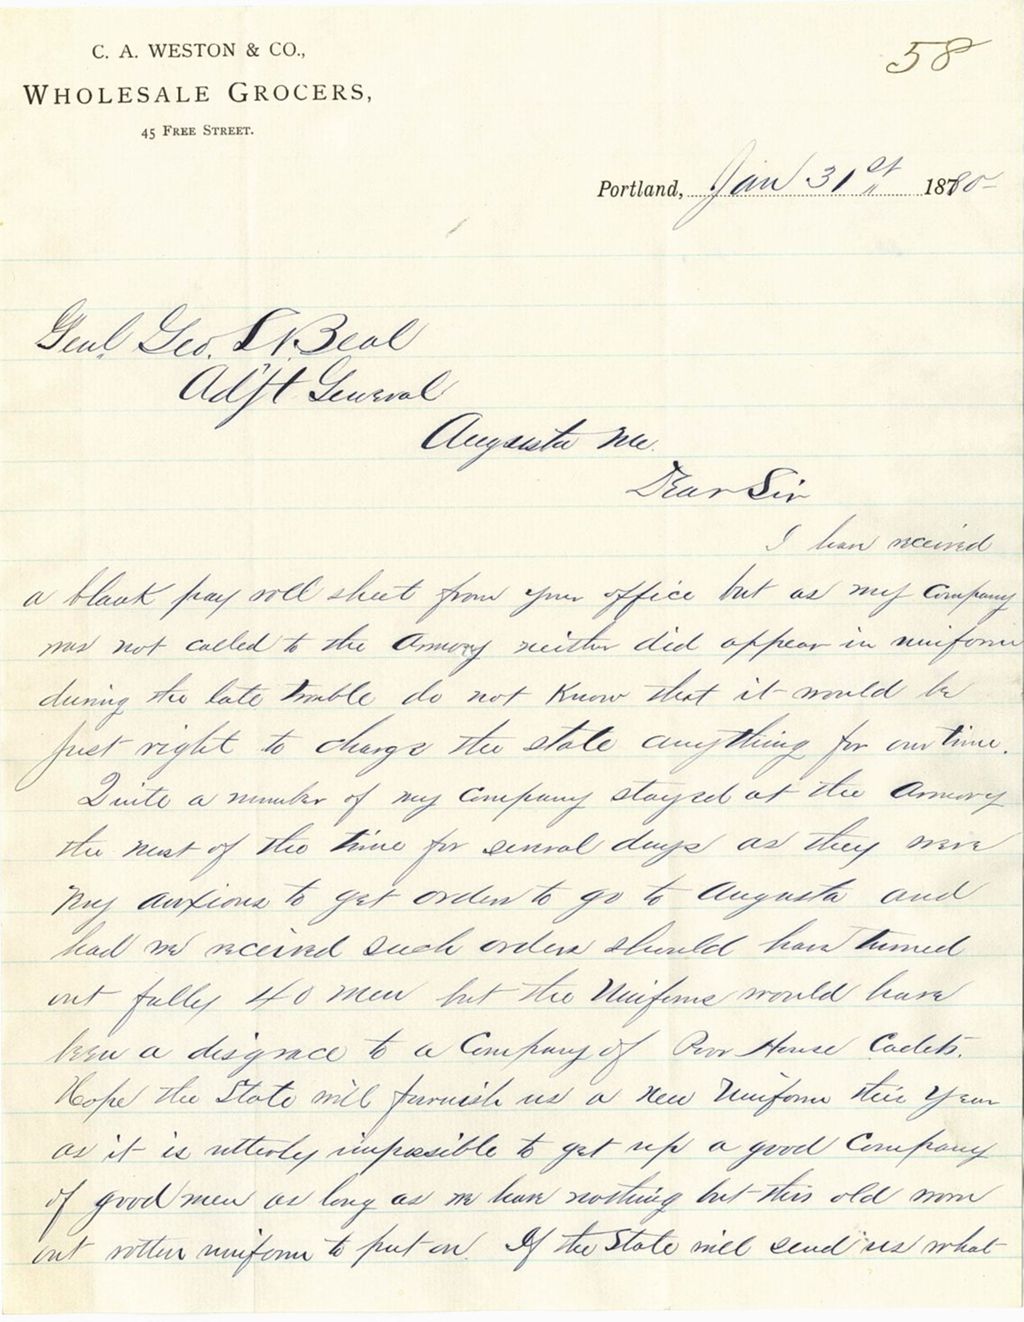 C. A. WESTON & CO.,
58
WHOLESALE GROCERS,
45 FREE STREET.
Portland, Jan 31st 1880
Genl. Geo. L. Beal
Adjt General
Augusta Me.
Dear Sir
I have received
a blank pay roll sheet from your office but as my Company
was not called to the Armory neither did appear in uniform
during the late trouble do not Know that it would be
Just right to charge the state anything for our time.
Quite a number of my Company stayed at the Armory
the most of the time for several days as they were
very anxious to get orders to go to Augusta and
had we received such orders should have turned
out fully 40 men but the Uniforms would have
been a disgrace to a Company of Poor House Cadets.
Hope the State will furnish us a new Uniform this Year
as it is utterly impossible to get up a good Company
of good men as long as we have nothing but this old worn
out rotten uniform to put on. If the State will send us what